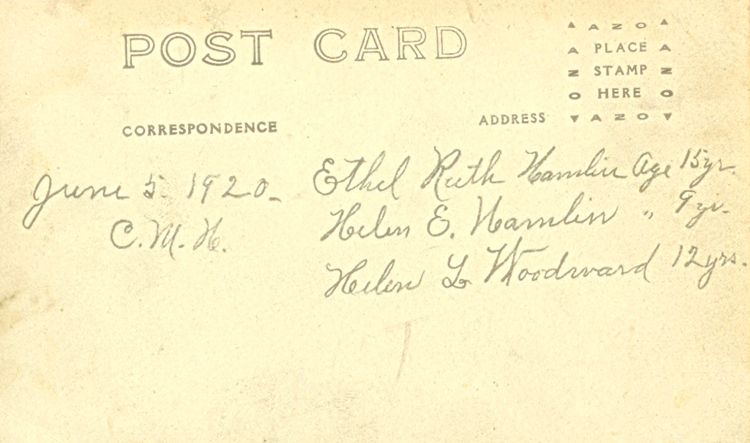 POST CARD
AZO
PLACE
STAMP
HERE
AZO
CORRESPONDENCE
ADDRESS
June 5. 1920.
C. M. H.
Ethel Ruth Hamlin Age 15yr.
Helen E. Hamlin " 9yr.
Helen L Woodward 12yrs.